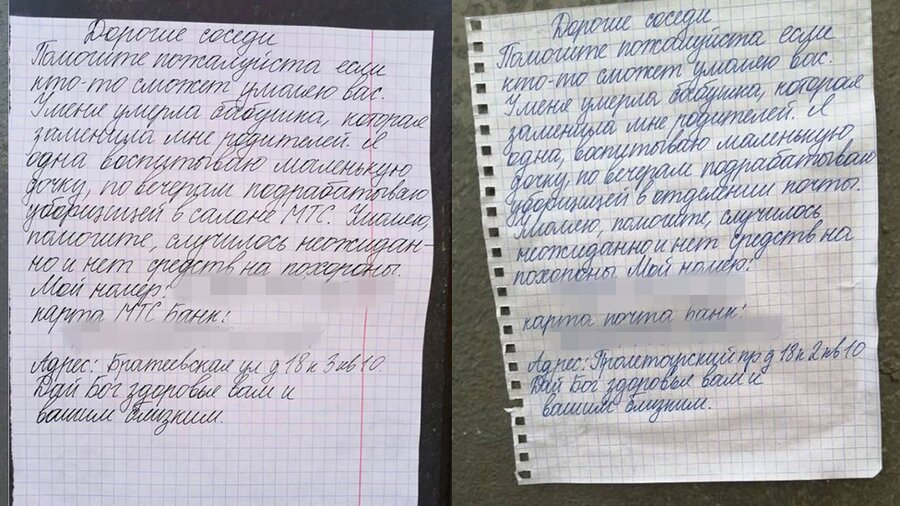 Дорогие соседи
Помогите пожалуйста если
кто-то сможет умаляю вас.
У меня умерла бабушка, которая
заменила мне родителей. Я
одна воспитываю маленькую
дочку, по вечерам подрабатываю
уборщицей в салоне МТС. Умаляю,
помогите, случилось неожидан-
но и нет средств на похороны.
Мой номер:
карта МТС Банк:
Адрес: Братеевская ул д 18 к 3 кв 10.
Дай Бог здоровье вам и
вашим близким.
Дорогие соседи
Помогите пожалуйста если
кто-то сможет умаляю вас.
У меня умерла бабушка, которая
заменила мне родителей. Я
одна, воспитываю маленькую
дочку, по вечерам подрабатываю
уборщицей в отделении почты.
Умаляю, помогите, случилось
неожиданно и нет средств на
похороны Мой номер:
карта почта банк:
Адрес: Пролетарский пр д 18 к 2 кв 10
Дай Бог здоровье вам и
вашим близким.